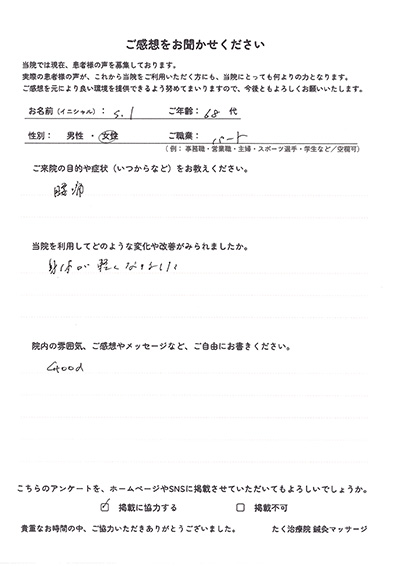 ご感想をお聞かせください
当院では現在、患者様の声を募集しております。
実際の患者様の声が、これから当院をご利用いただく方にも、当院にとっても何よりの力となります。
ご感想を元により良い環境を提供できるよう努めてまいりますので、今後ともよろしくお願いいたします。
お名前（イニシャル）： S.I ご年齢： 68 代
性別： 男性 ・ 女性 ご職業： パート
（ 例： 事務職・営業職・主婦・スポーツ選手・学生など／空欄可）
ご来院の目的や症状（いつからなど）をお教えください。
腰痛
当院を利用してどのような変化や改善がみられましたか。
身体が軽くなりました
院内の雰囲気、ご感想やメッセージなど、ご自由にお書きください。
Good
こちらのアンケートを、ホームページやSNSに掲載させていただいてもよろしいでしょうか。
☑ 掲載に協力する □ 掲載不可
貴重なお時間の中、ご協力いただきありがとうございました。 たく治療院 鍼灸マッサージ